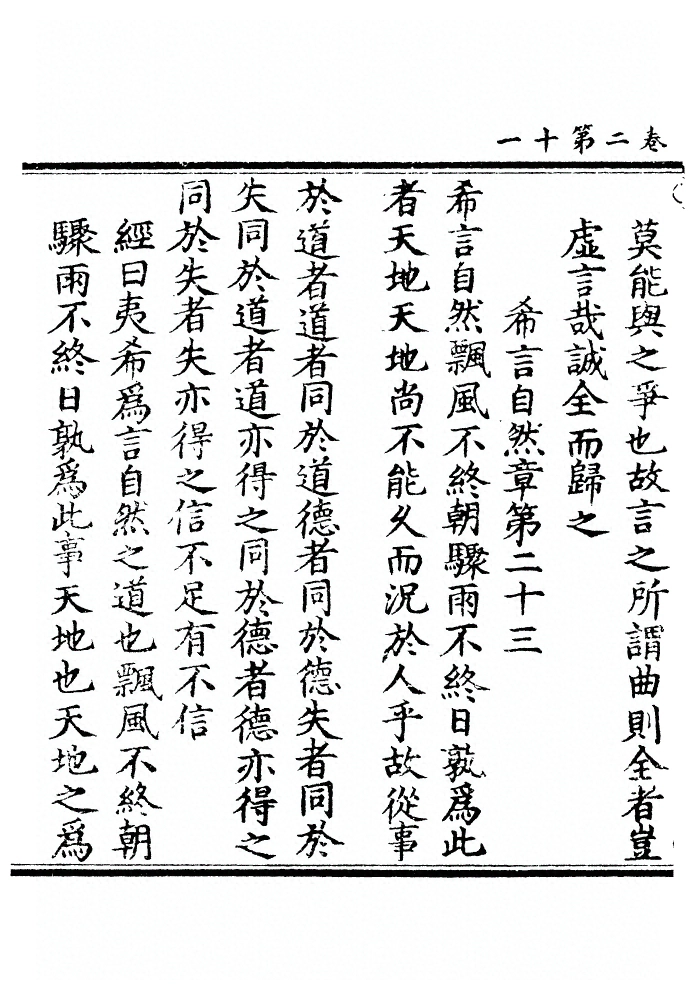 卷二第十一
莫能與之爭也故言之所謂曲則全者豈
虛言哉誠全而歸之
希言自然章第二十三
希言自然飄風不終朝驟雨不終日孰爲此
者天地天地尚不能久而況於人乎故從事
於道者道者同於道德者同於德失者同於
失同於道者道亦得之同於德者德亦得之
同於失者失亦得之信不足有不信
經曰夷希爲言自然之道也飄風不終朝
驟雨不終日孰爲此事天地也天地之爲